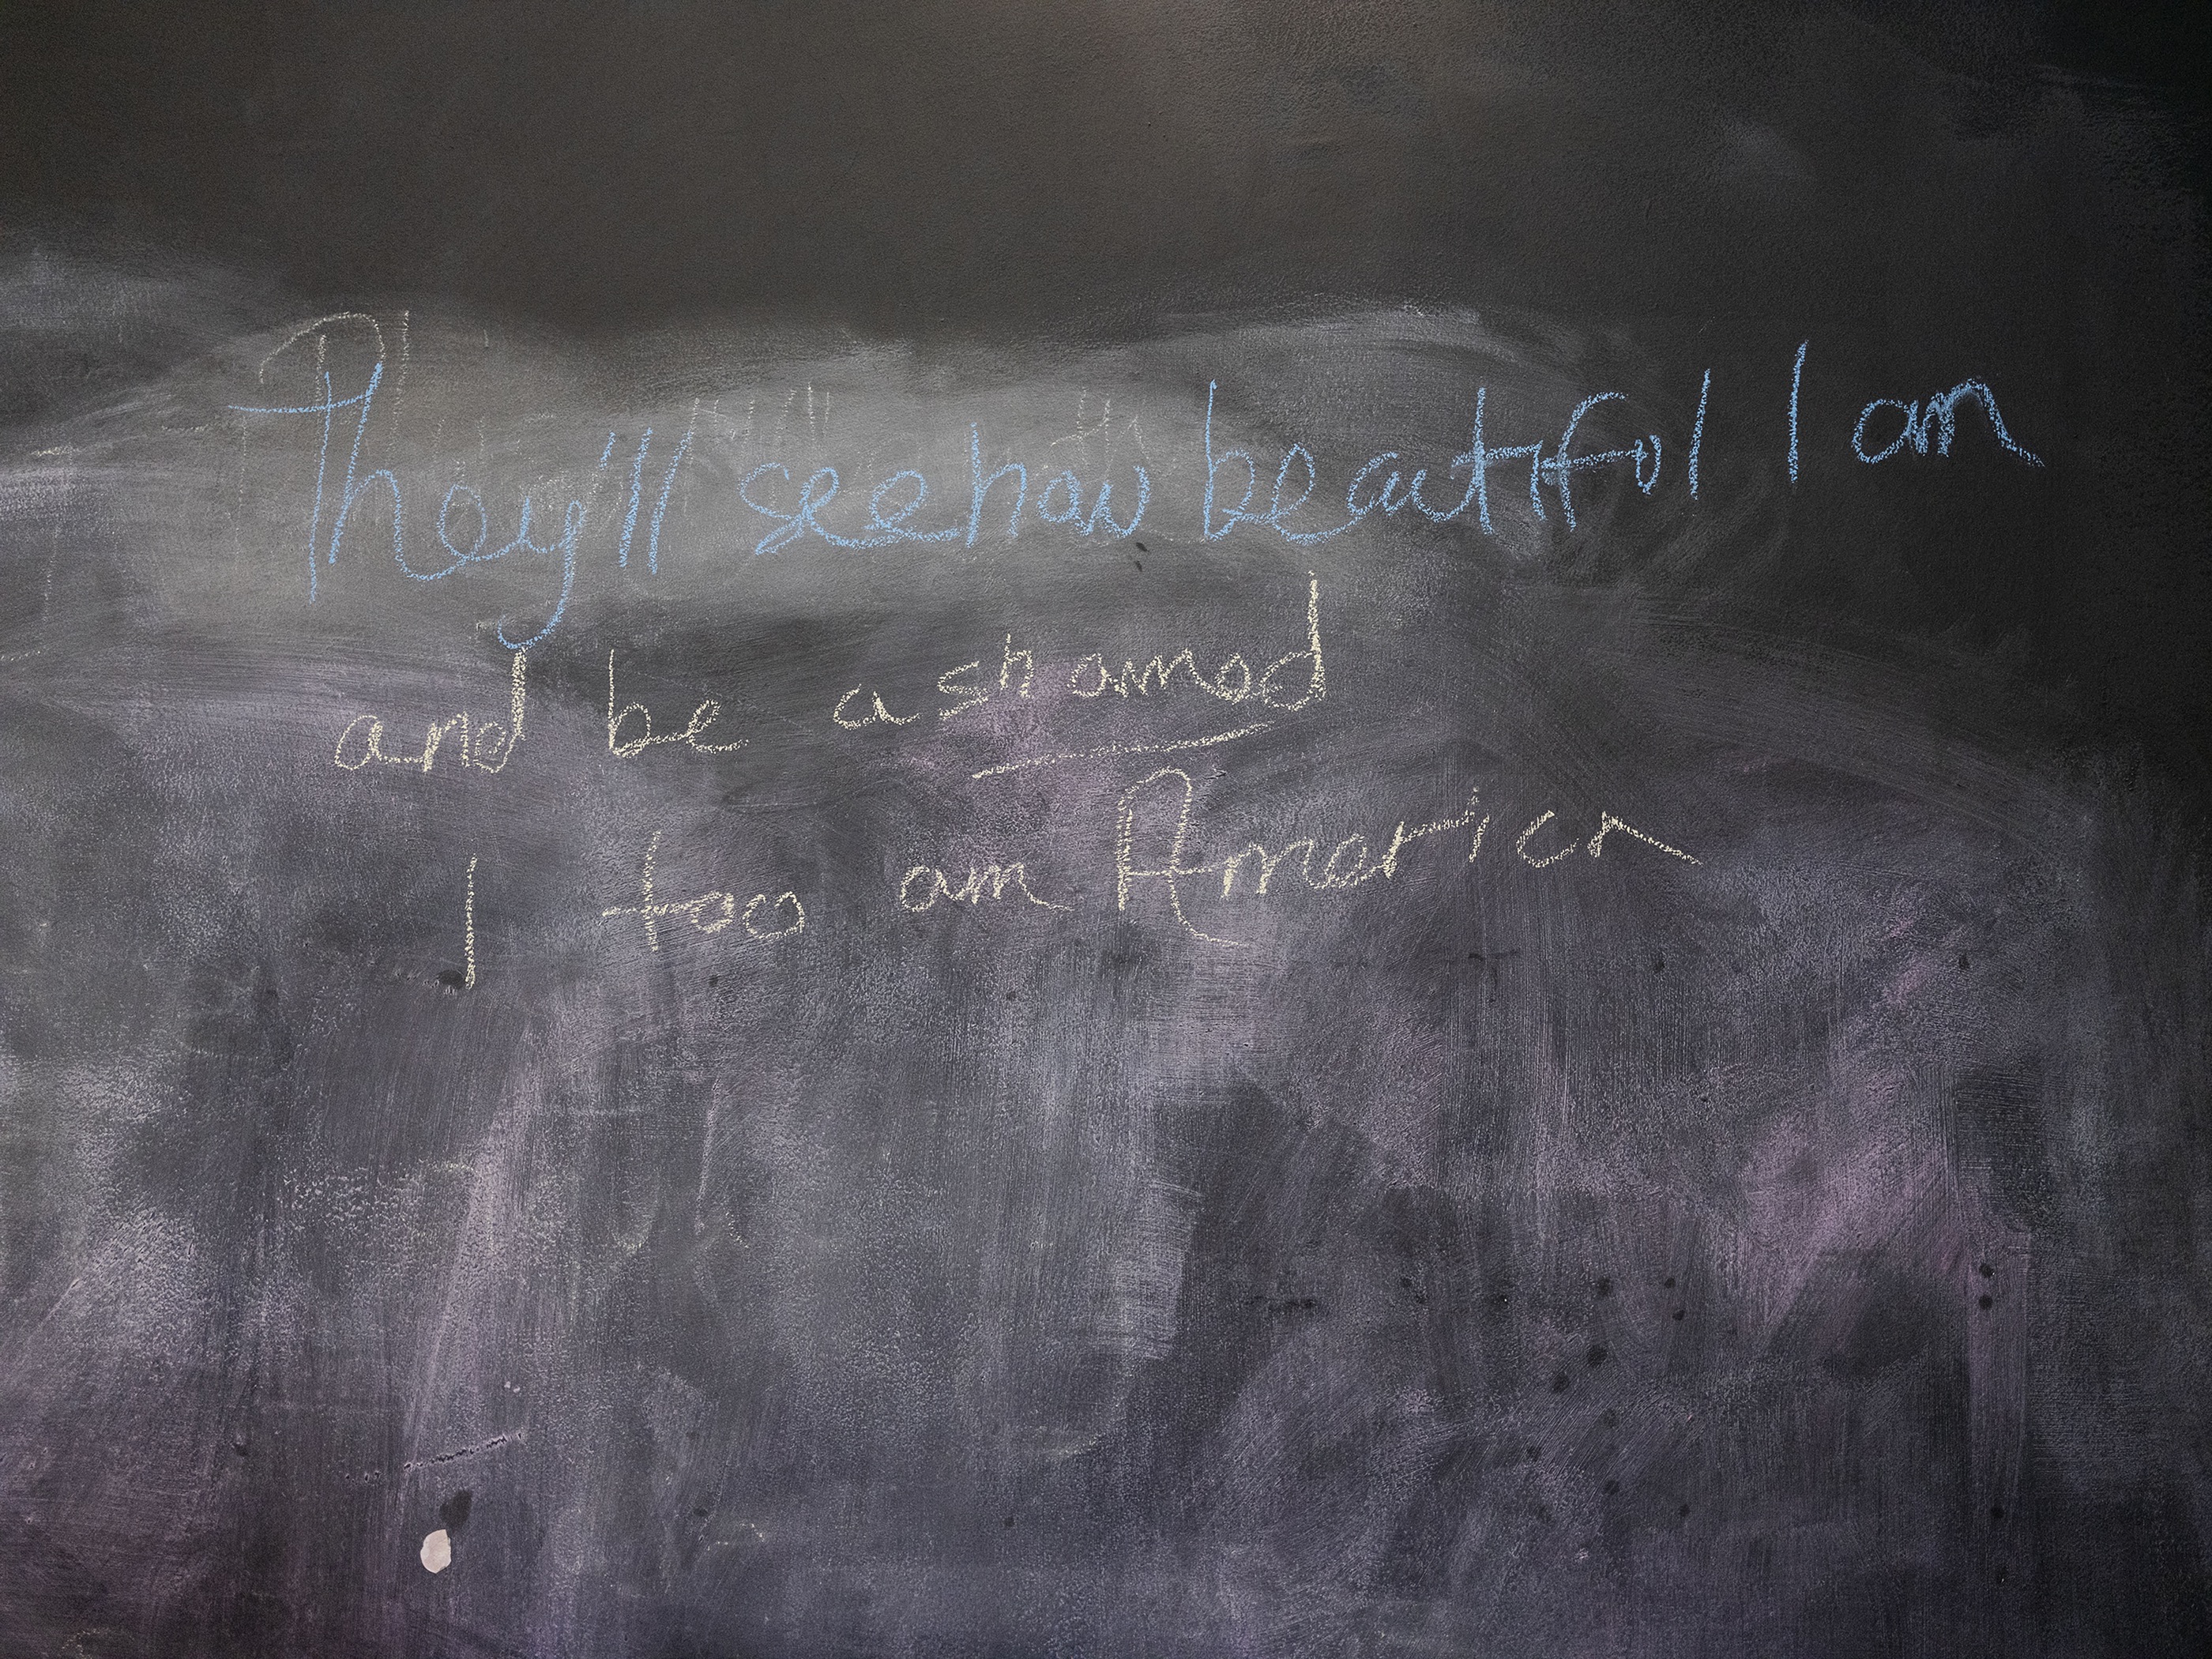 They'll see how beautiful I am
and be ashamed
I too am America